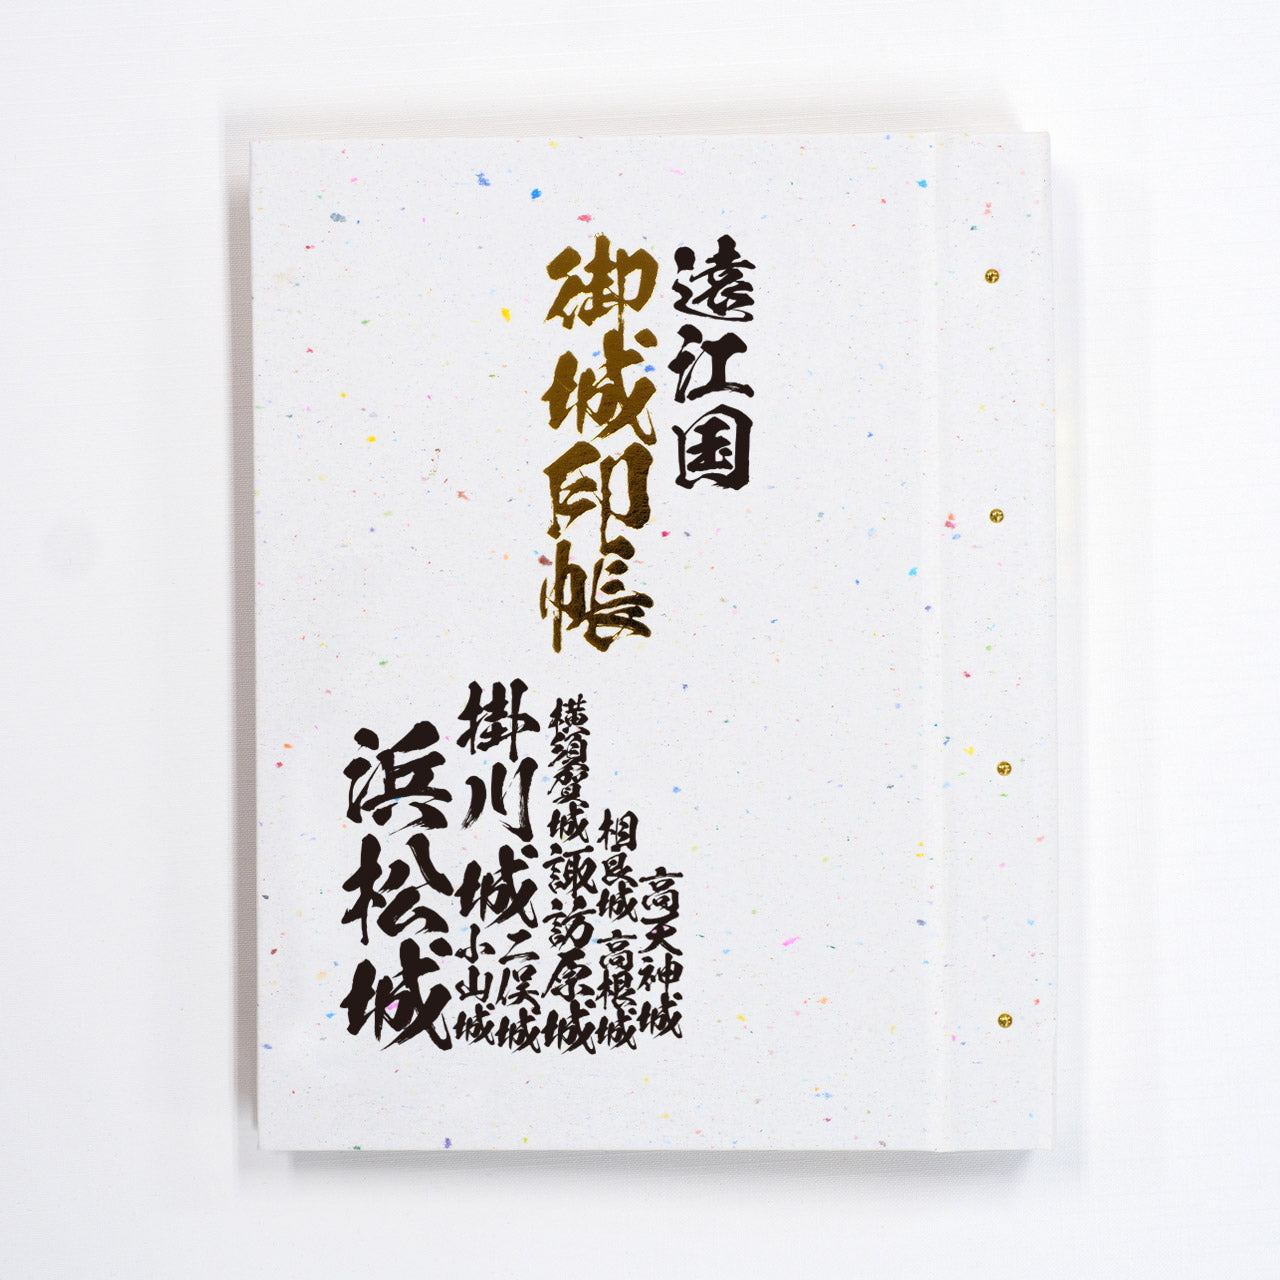 遠江国
御城印帳
高天神城
相良城
高根城
横須賀城
諏訪原城
掛川城
二俣城
小山城
浜松城